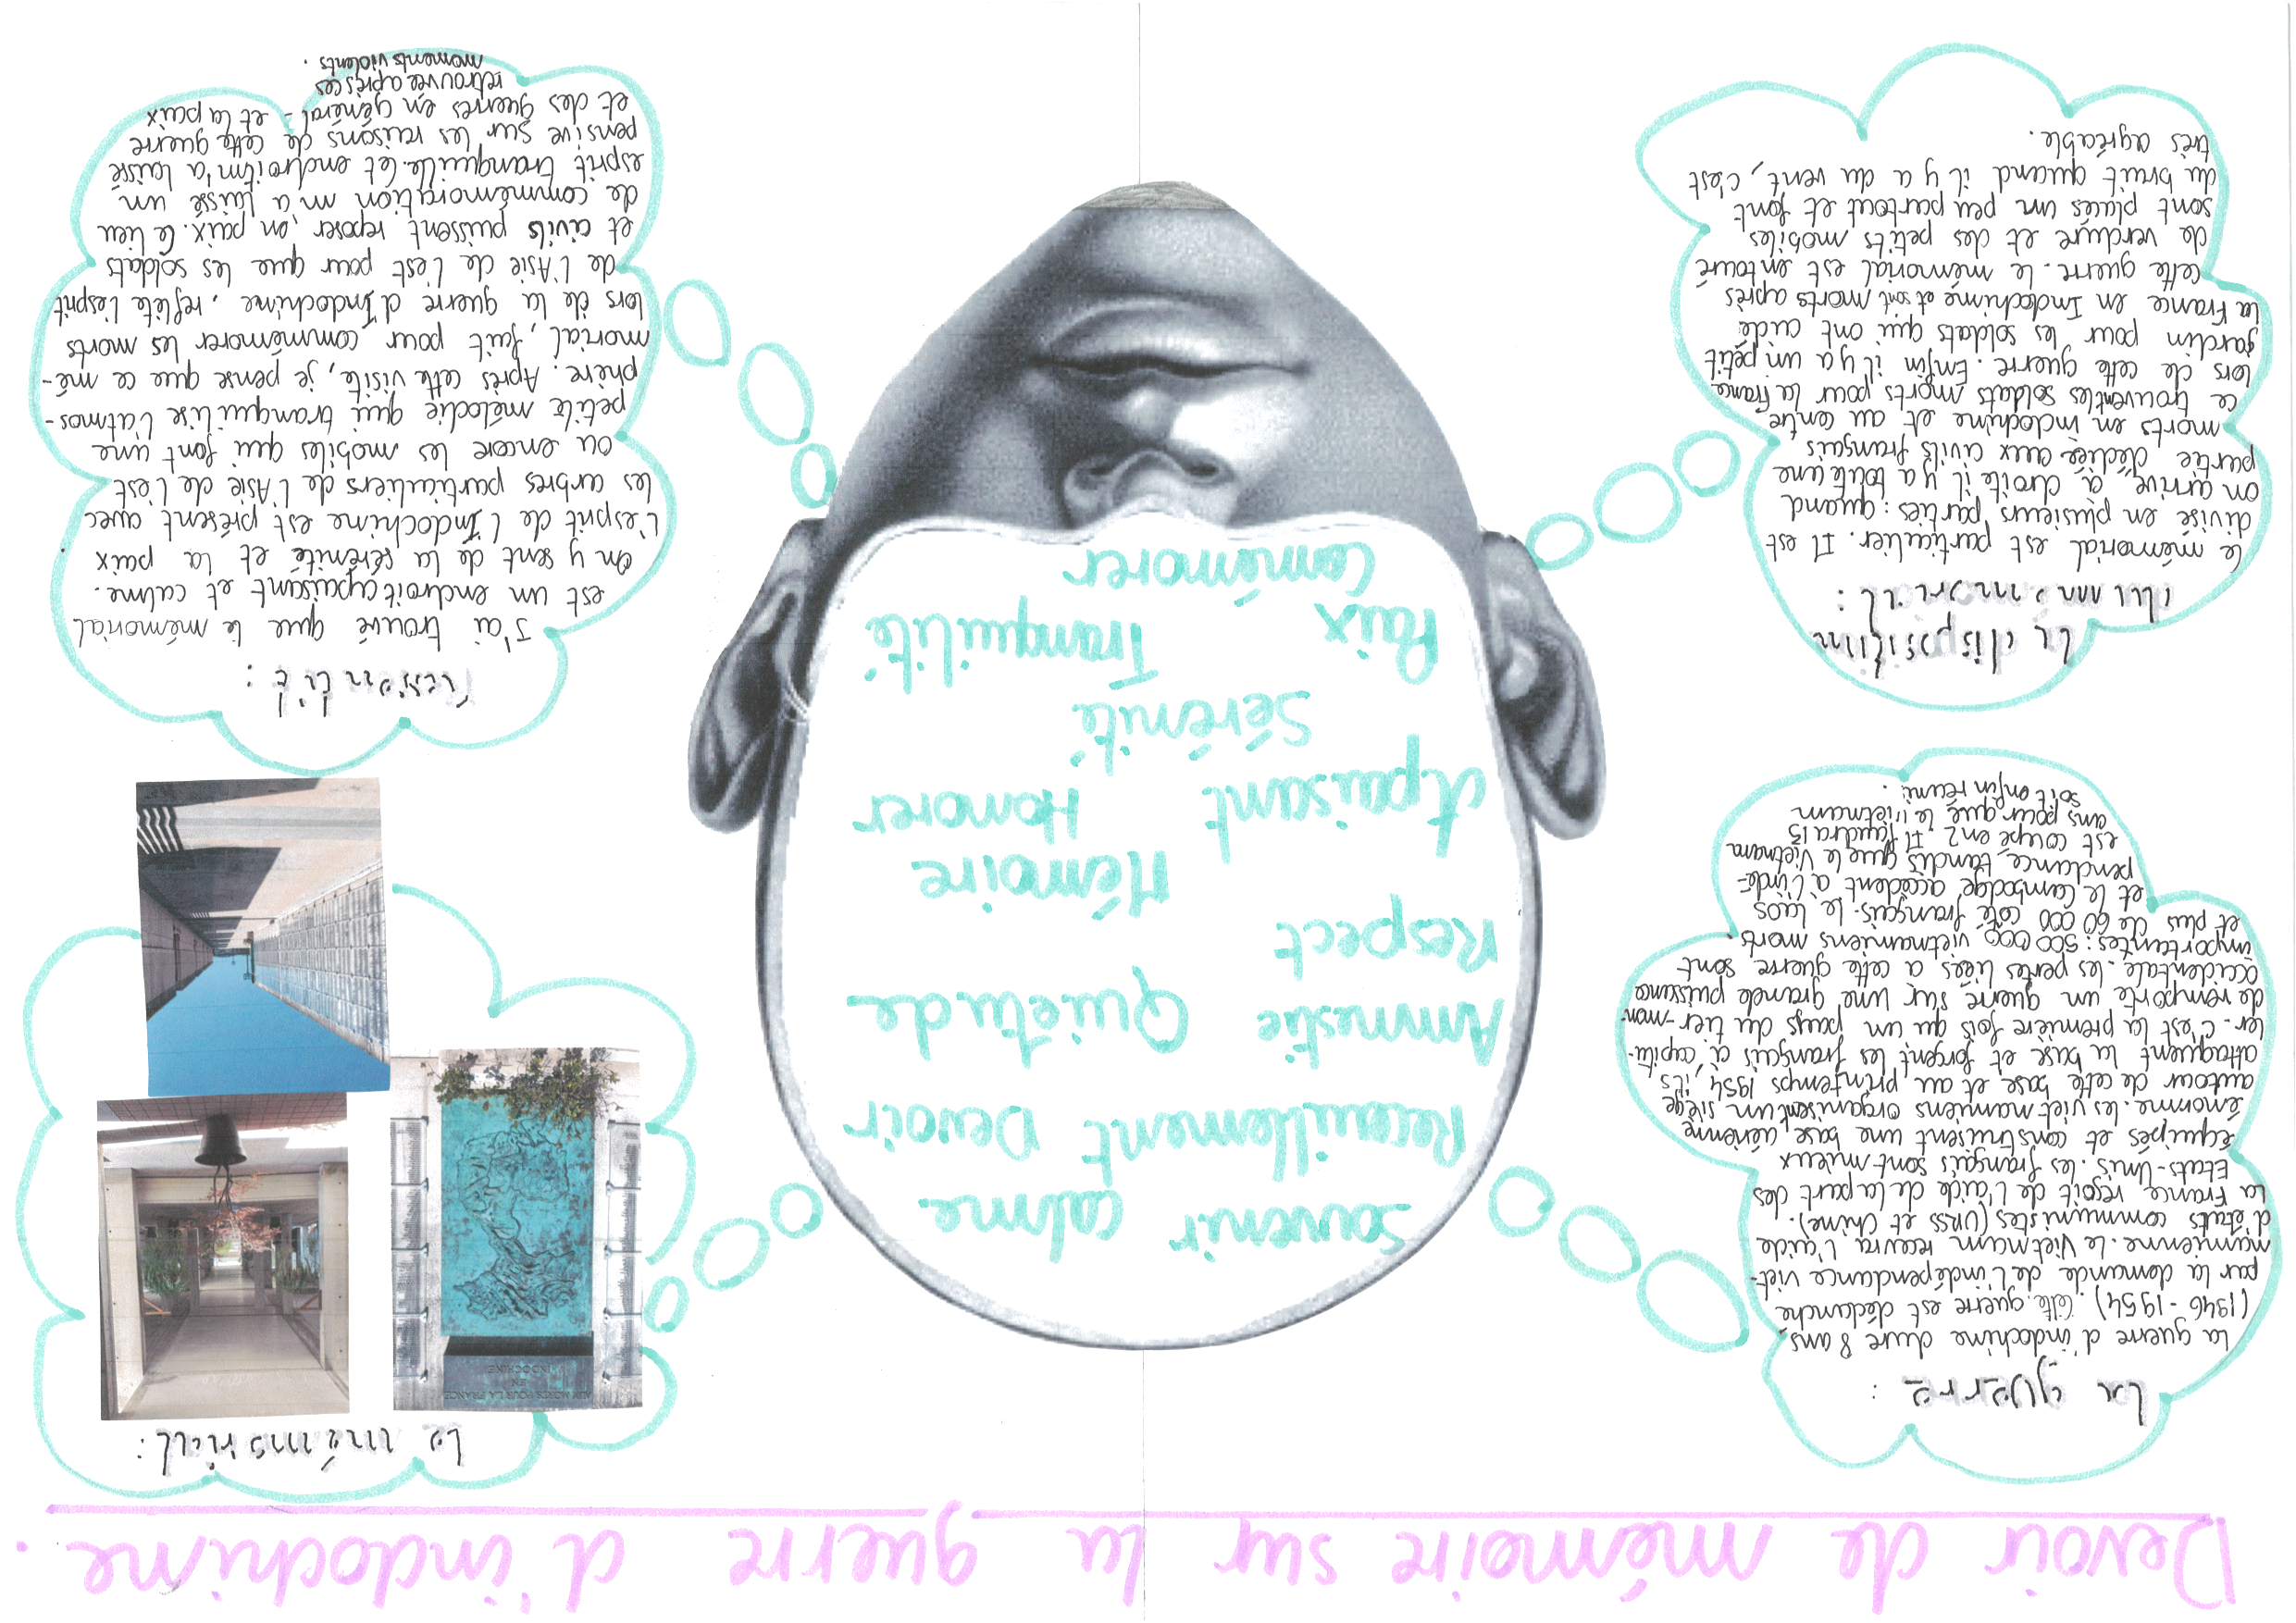 Devoir de mémoire sur la guerre d'indochine.
La guerre :
La guerre d'indochine dure 8 ans
(1946-1954). Cette guerre est déclanché
par la demande de l'indépendance viet-
namienne. Le Vietnam recevra l'aide
d'états communistes (URSS et Chine).
La France reçoit de l'aide de la part des
Etats-Unis. Les français sont mieux
équipés et construisent une base aérienne
énorme. Les vietnamiens organisent un siège
autour de cette base et au printemps 1954, ils
attaquent la base et forçent les français à capitu-
ler. C'est la première fois qu'un pays du tier-mon-
de remporte un guerre sur une grande puissance
occidentale. Les pertes liées a cette guerre sont
importantes : 500 000 vietnamiens morts
et plus de 60 000 coté français. Le Laos
et le Cambodge accèdent à l'indé-
pendance, tandis que le Vietnam
est coupé en 2. Il faudra 15
ans pour que le Vietnam
soit enfin réuni.
Le mémorial :
AUX MORTS POUR LA FRANCE
EN
INDOCHINE
Souvenir calme
Receuillement Devoir
Amnestie Quiétude
Respect
Mémoire
Apaisant Honorer
Sérénité
Paix Tranquilité
Comémorer
La disposition
du mémorial :
Le mémorial est particulier. Il est
divisé en plusieurs parties : quand
on arrive, à droite il y a toute une
partie dédiée aux civils français
morts en indochine et au centre
ce trouventles soldats morts pour la France
lors de cette guerre. Enfin il y a un petit
jardin pour les soldats qui ont aidé
la France en Indochine et sont morts après
cette guerre. Le mémorial est entouré
de verdure et des petits mobiles
sont placés un peu partout et font
du bruit quand il y a du vent, c'est
très agréable.
Ressenti :
J'ai trouvé que le mémorial
est un endroit apaisant et calme.
On y sent de la sérénité et la paix
L'esprit de l'Indochine est présent avec
les arbres particuliers de l'Asie de l'est
ou encore les mobiles qui font une
petite mélodie qui tranquilise l'atmos-
phère. Après cette visite, je pense que ce mé-
morial, fait pour commémorer les morts
lors de la guerre d'Indochine, reflète l'esprit
de l'Asie de l'est pour que les soldats
et civils puissent reposer en paix. Ce lieu
de commémoration m'a laissé un
esprit tranquille. Cet endroit m'a laissé
pensive sur les raisons de cette guerre
et des guerres en général - et la paix
retrouvée après ces
moments violents.